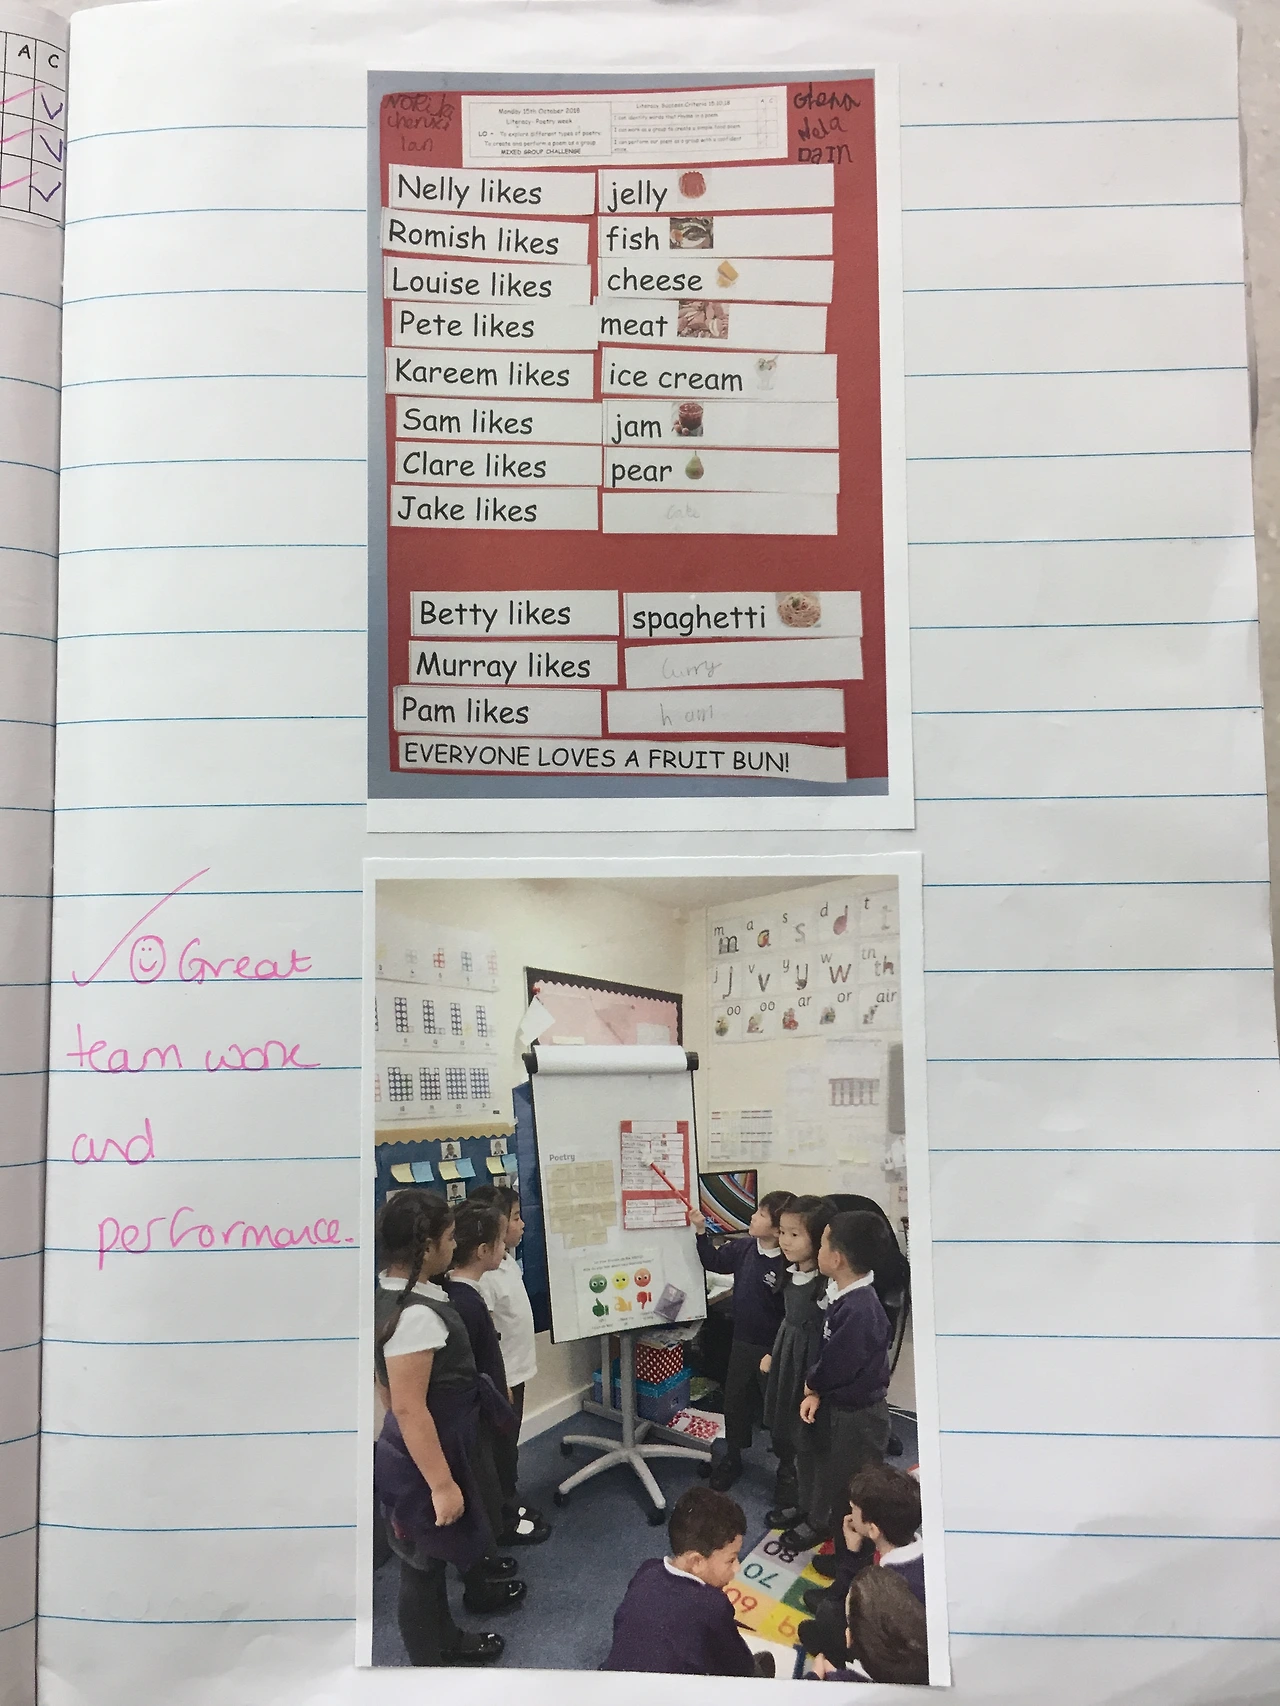 A C
Monday 15th October 2018
Literacy: Poetry week
LO - To explore different types of poetry
To create and perform a poem as a group
MIXED GROUP CHALLENGE
Literacy Success Criteria 15.10.18 A C
I can identify words that rhyme in a poem
I can work as a group to create a simple food poem
I can perform our poem as a group with a confident
Ian
Nelly likes jelly
Romish likes fish
Louise likes cheese
Pete likes meat
Kareem likes ice cream
Sam likes jam
Clare likes pear
Jake likes cake
Betty likes spaghetti
Murray likes curry
Pam likes ham
EVERYONE LOVES A FRUIT BUN!
Great
team work
and
performance.
m a s d t
j v y w th
oo oo ar or air
Poetry
80
70
60